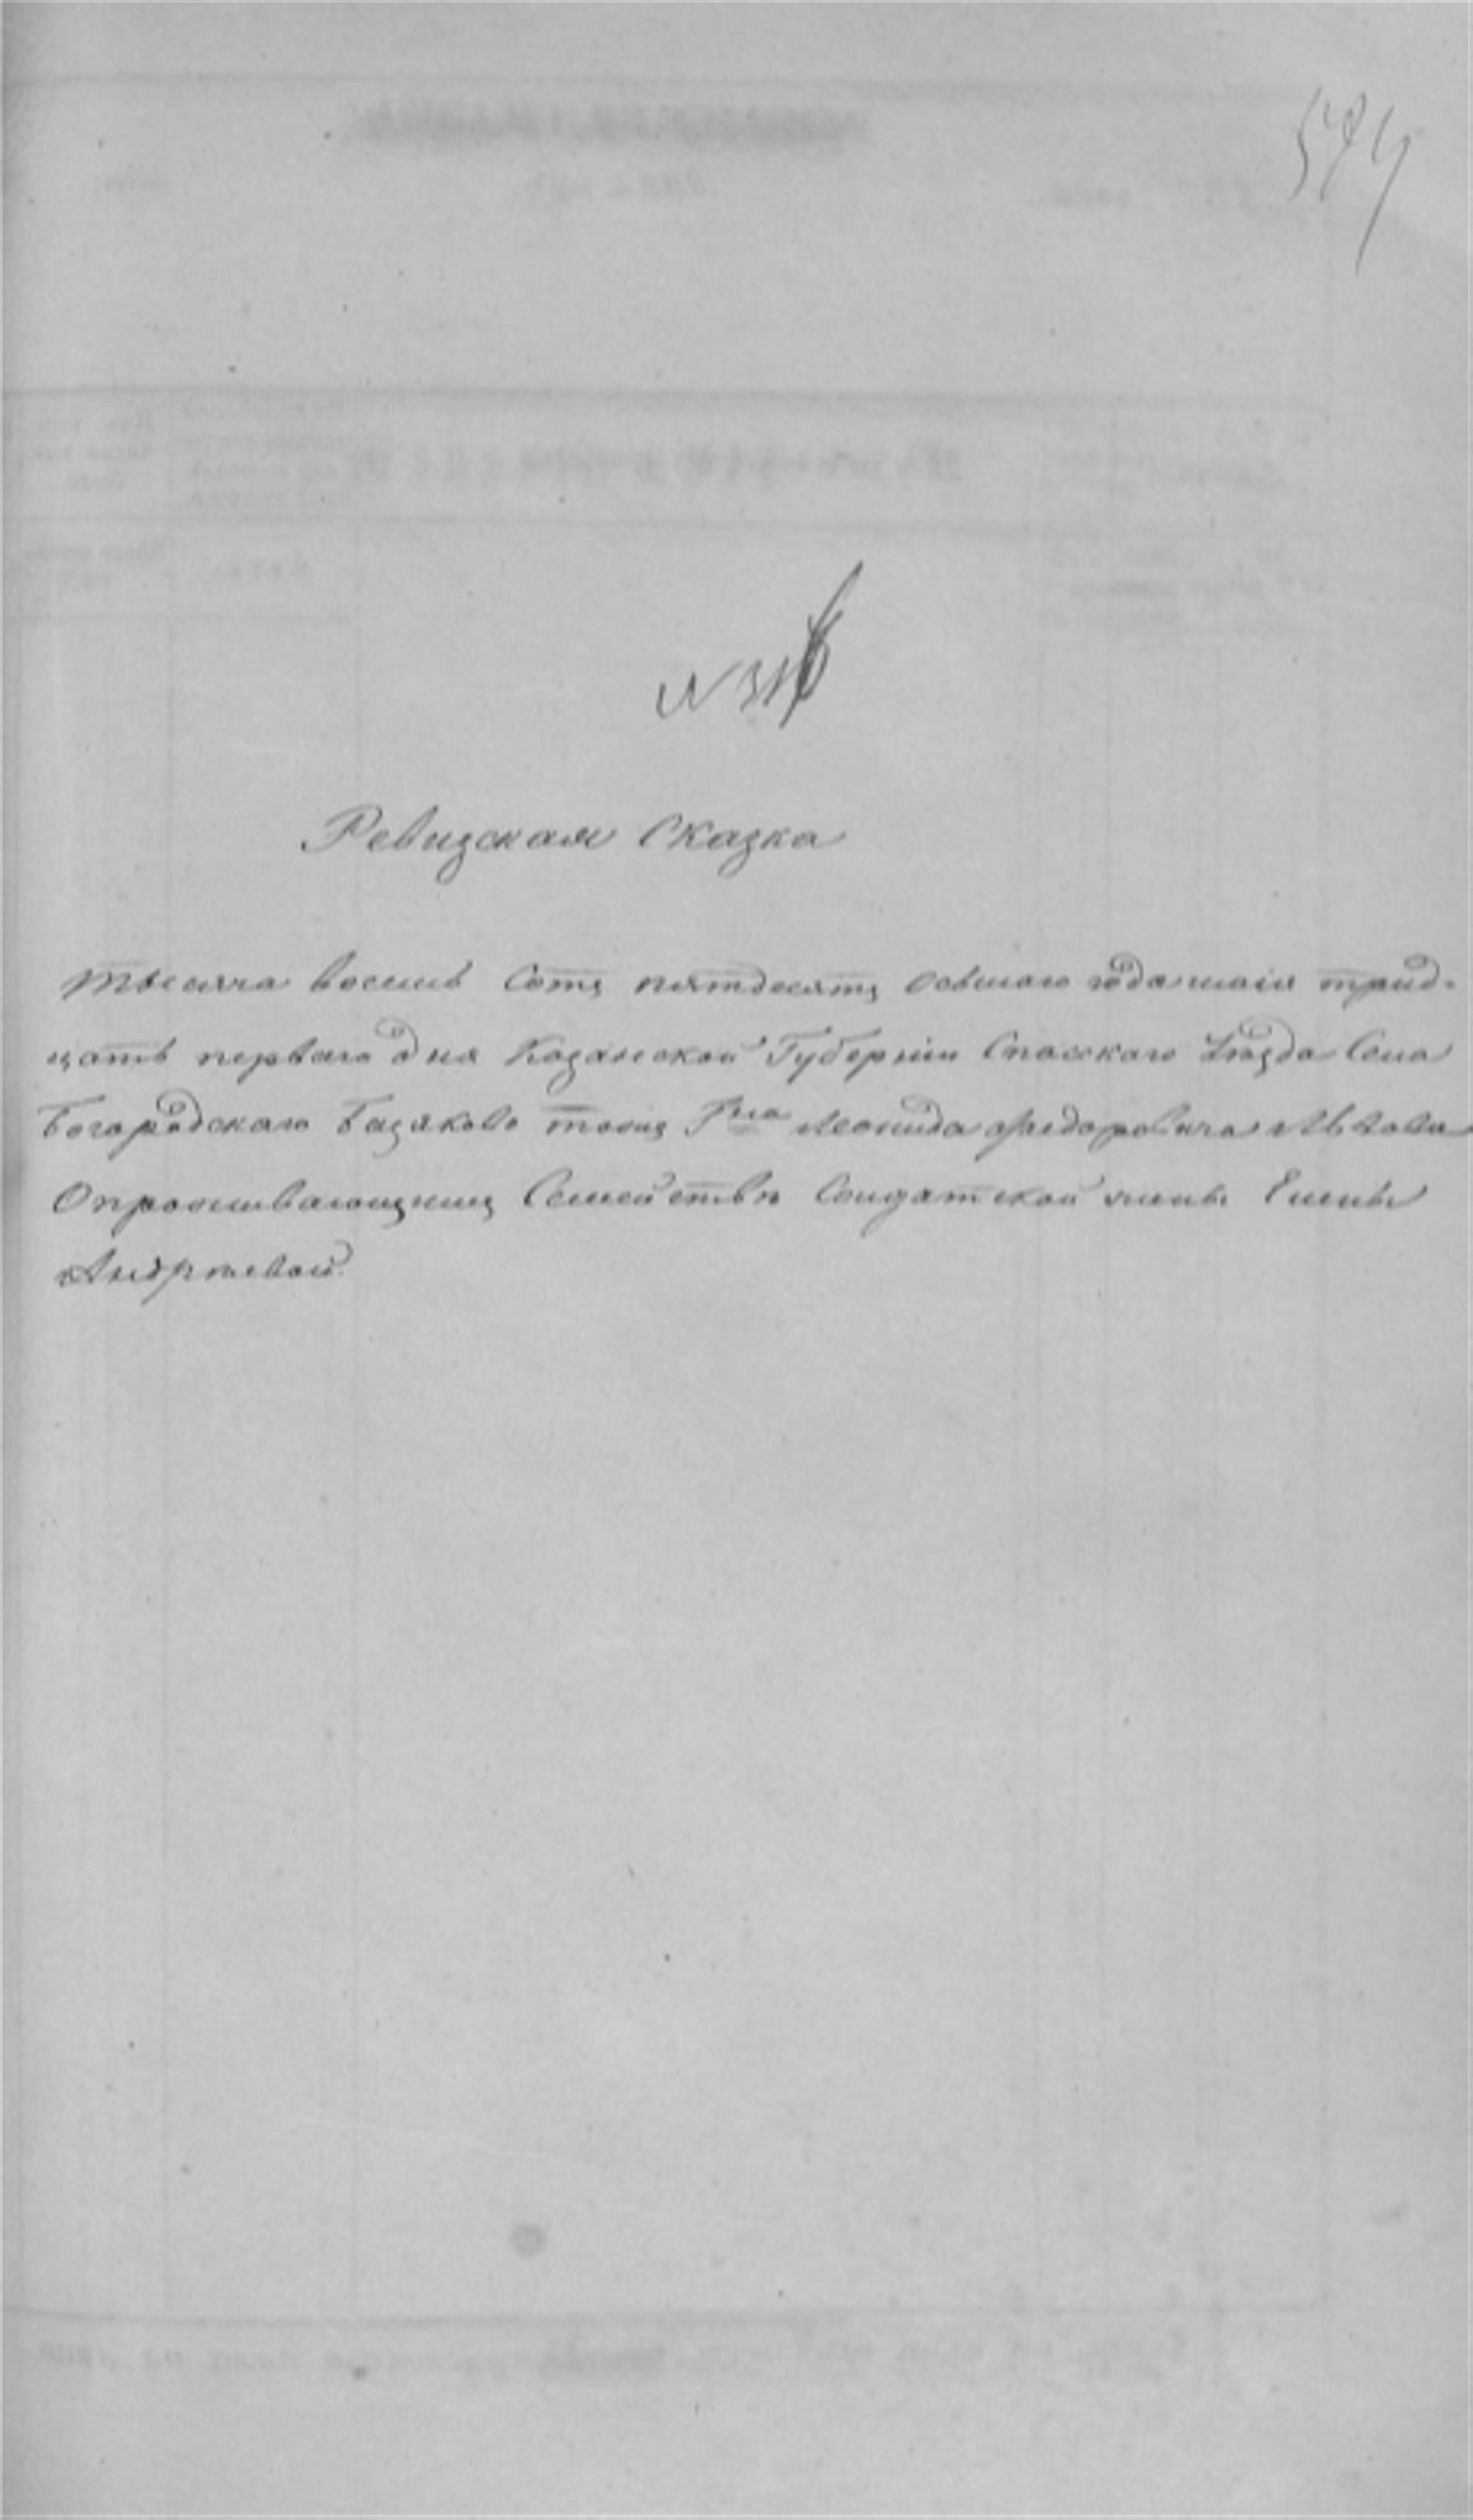 574
Ревизская Сказка
тысяча восемь сотъ пятдесятъ осьмаго года маія трид-
цать перваго дня Казанской Губерніи Спасскаго Уѣзда Села
Богородскаго Базяково тожъ Г<sup>на</sup> Леонида Федоровича Львова
О семействѣ Солдатской жены Елены
Андреевой.